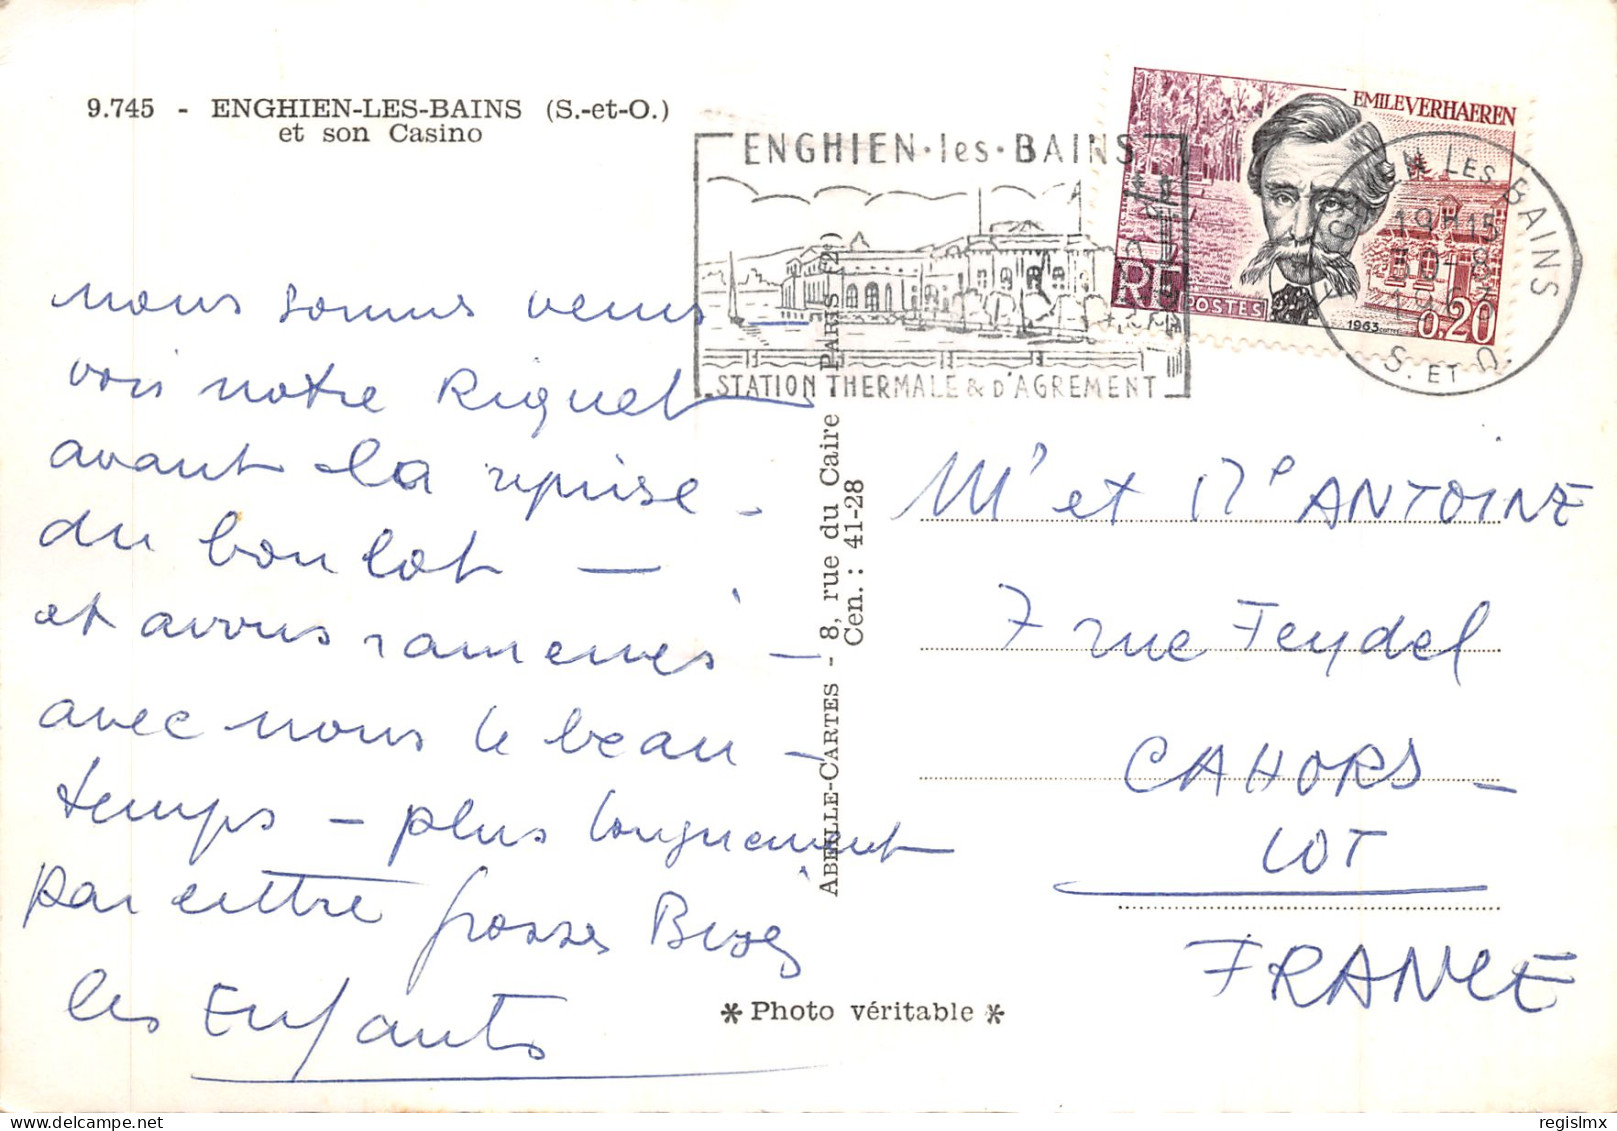 9.745 - ENGHIEN-LES-BAINS (S.-et-O.)
et son Casino
ENGHIEN·les·BAINS
STATION THERMALE & D'AGREMENT
EMILE VERHAEREN
RF
POSTES
1963
0,20
LES BAINS
19H15
30-8
1963
S. ET O.
nous sommes venus
voir notre Riquet
avant la reprise -
du boulot -
et avons ramenés -
avec nous le beau -
temps - plus longuement
par lettre grosses Bises
les Enfants
ABEILLE-CARTES - 8, rue du Caire PARIS (2e)
Cen. : 41-28
Mr et Me ANTOINE
7 rue Feydel
CAHORS -
LOT
FRANCE
* Photo véritable *
regisimx